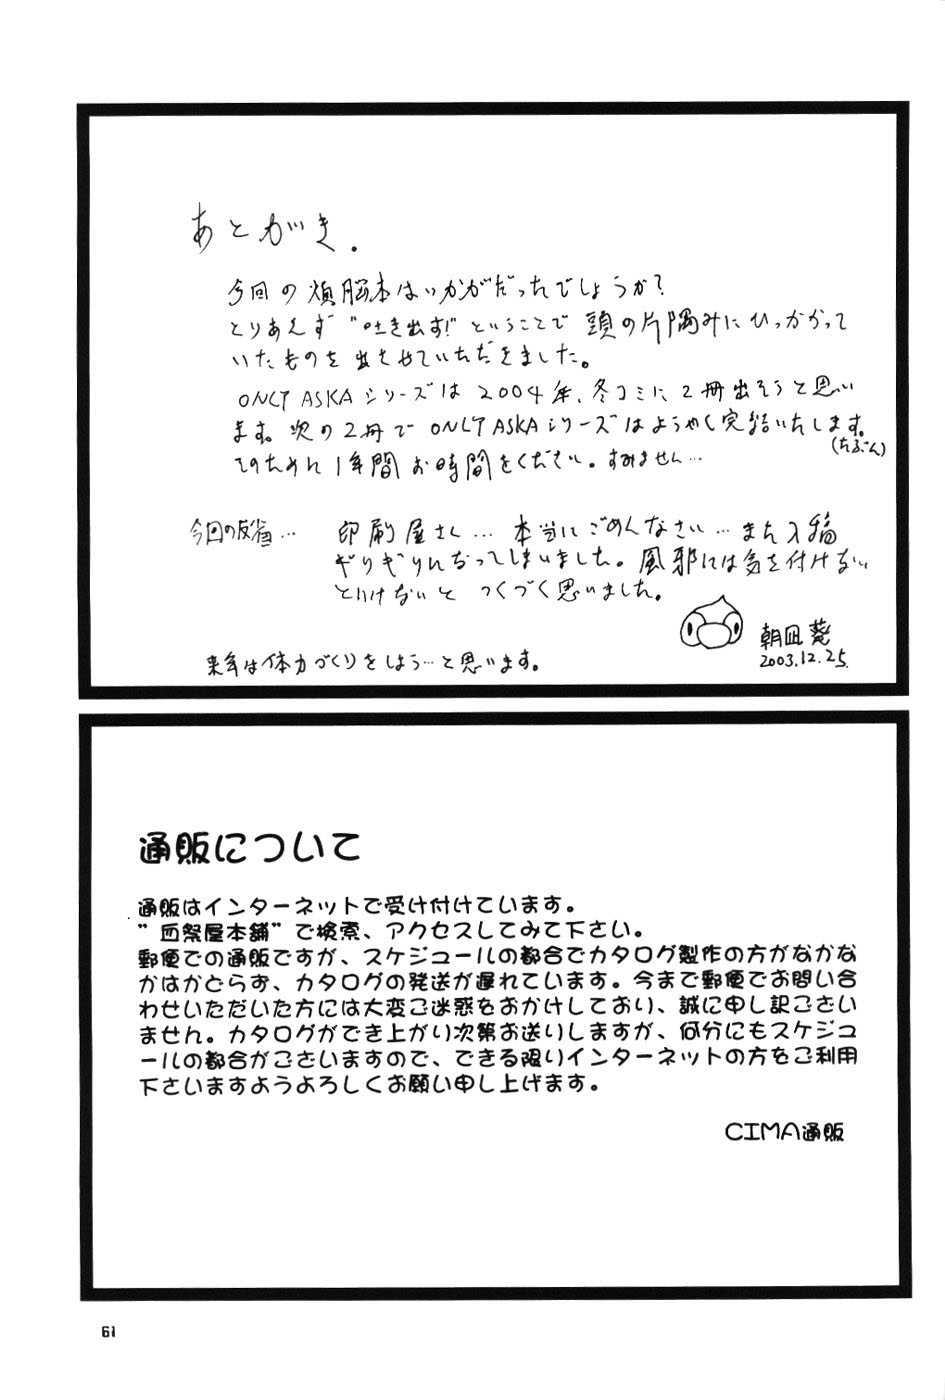 あとがき.
今回の煩脳本はいかがだったでしょうか?
とりあえず"吐き出す!"ということで頭の片隅みにひっかかって
いたものを出させていただきました。
ONLY ASKAシリーズは2004年、冬コミに2冊出そうと思い
ます。次の2冊でONLY ASKAシリーズはようやく完結いたします。
(たぶん)
そのために1年間お時間をください。すみません…
今回の反省… 印刷屋さん…本当にごめんなさい…また入稿
ギリギリになってしまいました。風邪には気を付けない
といけないとつくづく思いました。
朝凪 葵
2003.12.25.
来年は体力づくりをしよう…と思います。
通販について
通販はインターネットで受け付けています。
"血祭屋本舗"で検索、アクセスしてみて下さい。
郵便での通販ですが、スケジュールの都合でカタログ製作の方がなかな
かはかどらず、カタログの発送が遅れています。今まで郵便でお問い合
わせいただいた方には大変ご迷惑をおかけしており、誠に申し訳ござい
ません。カタログができ上がり次第お送りしますが、何分にもスケジュ
ールの都合がございますので、できる限りインターネットの方をご利用
下さいますようよろしくお願い申し上げます。
CIMA通販
61